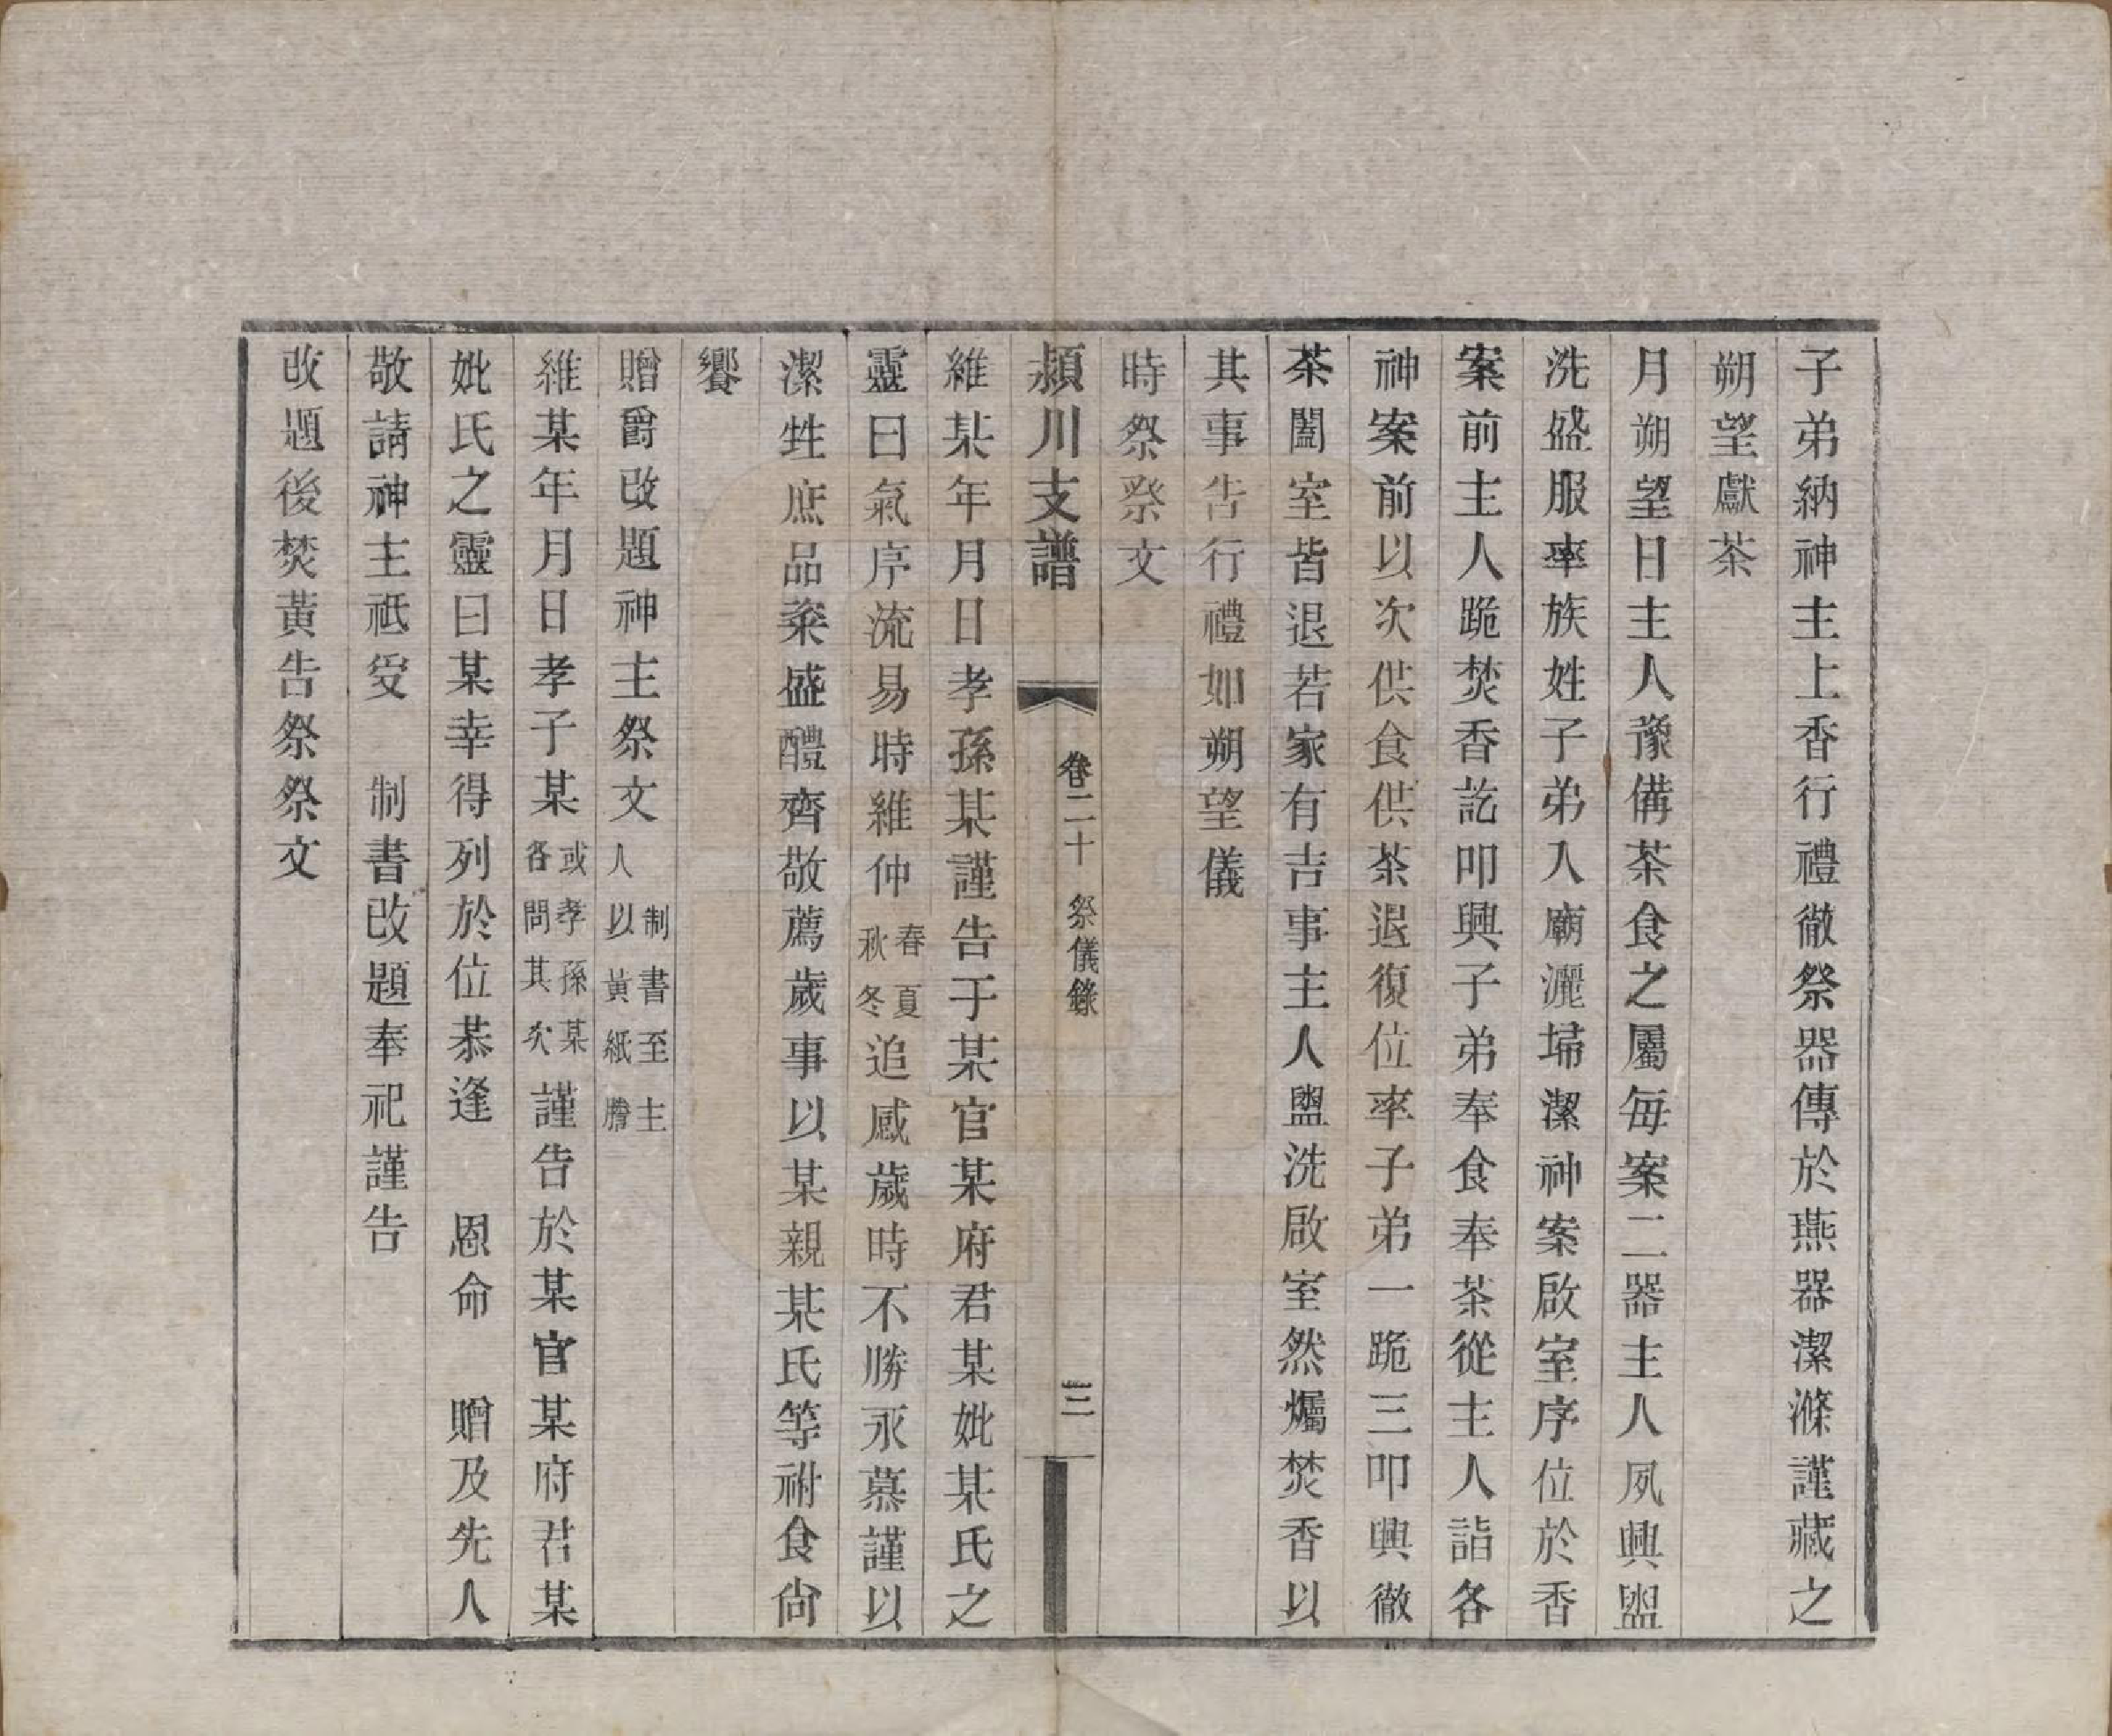 子弟納神主上香行禮徹祭器傳於燕器潔滌謹藏之
朔望獻茶
月朔望日主人豫備茶食之屬每案二器主人夙興盥
洗盛服率族姓子弟入廟灑埽潔神案啟室序位於香
案前主人跪焚香訖叩興子弟奉食奉茶從主人詣各
神案前以次供食供茶退復位率子弟一跪三叩興徹
茶闔室皆退若家有吉事主人盥洗啟室然爥焚香以
其事告行禮如朔望儀
時祭祭文
潁川支譜
卷二十
祭儀錄
三
維某年月日孝孫某謹告于某官某府君某妣某氏之
靈曰氣序流易時維仲春夏秋冬追感歲時不勝永慕謹以
潔牲庶品粢盛醴齊敬薦歲事以某親某氏等祔食尙
饗
贈爵改題神主祭文制書至主人以黃紙謄
維某年月日孝子某或孝孫某各問其次謹告於某官某府君某
妣氏之靈曰某幸得列於位恭逢 恩命 贈及先人
敬請神主祗受 制書改題奉祀謹告
改題後焚黃告祭祭文